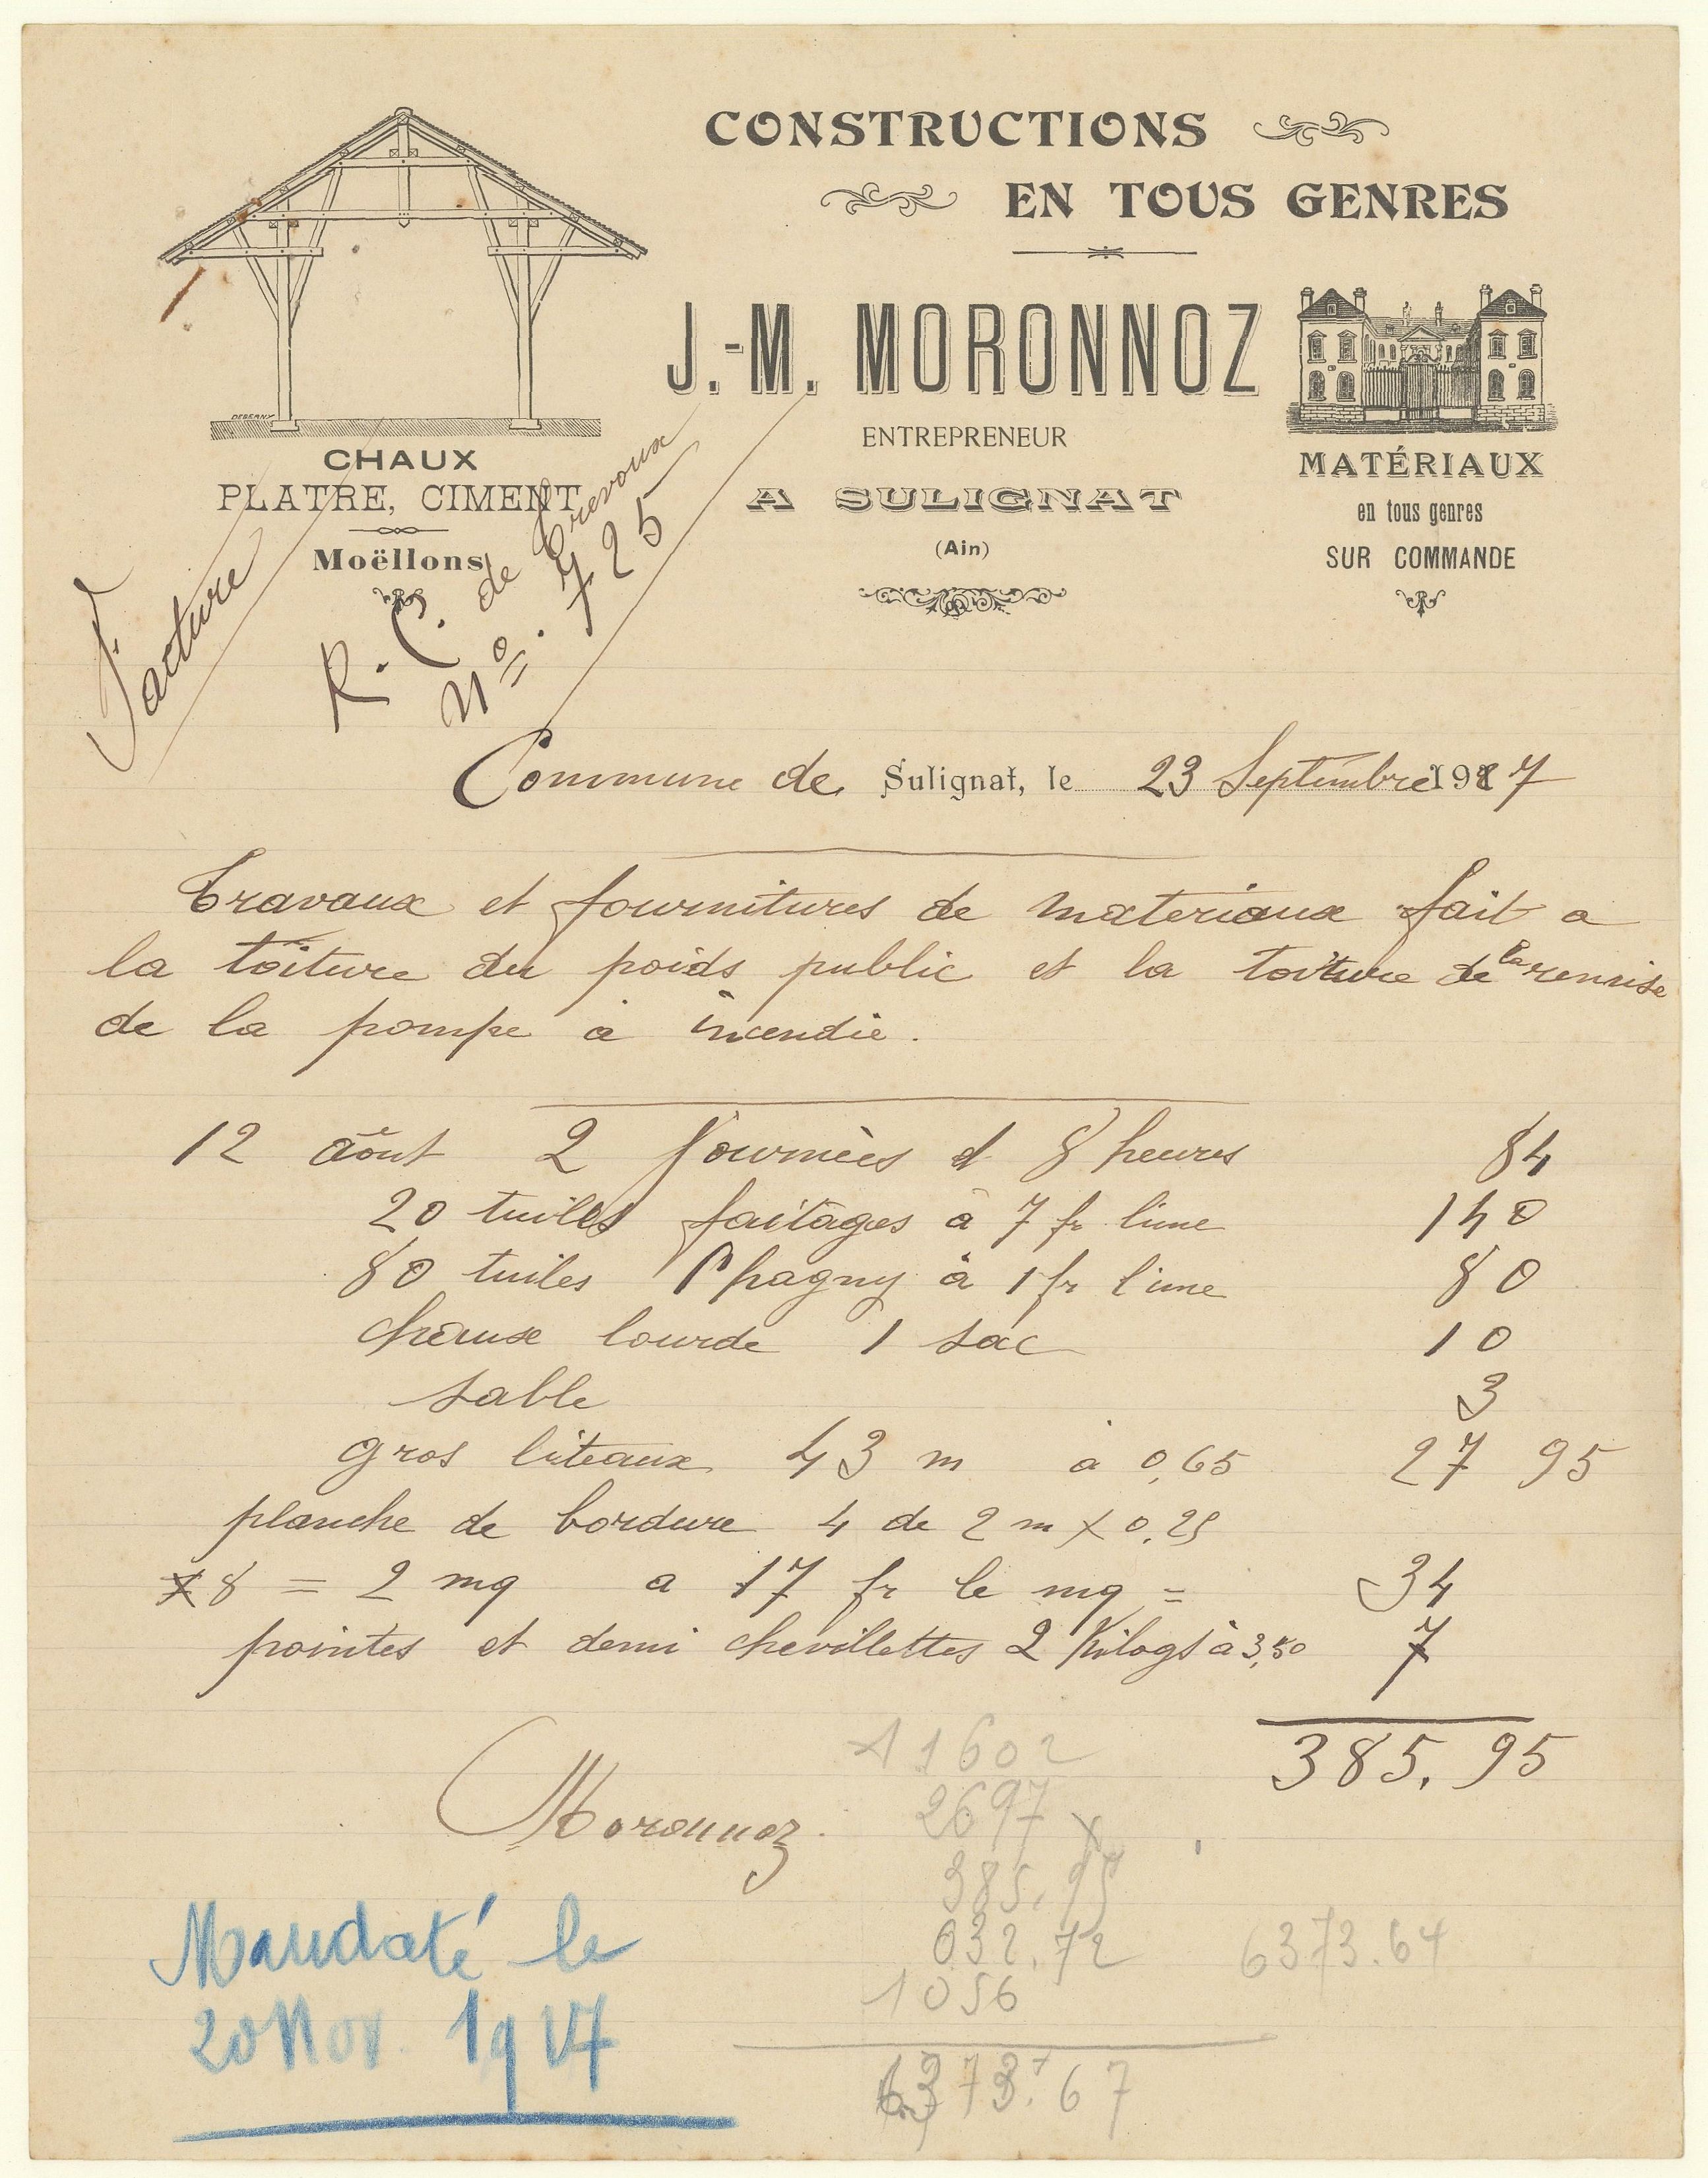 CONSTRUCTIONS
EN TOUS GENRES
J.-M. MORONNOZ
ENTREPRENEUR
A SULIGNAT
(Ain)
DEBERNY
CHAUX
PLATRE, CIMENT
Moëllons
MATÉRIAUX
en tous genres
SUR COMMANDE
Facture
R. C. de Trevoux
No. 725
Commune de Sulignat, le 23 Septembre 1927
Travaux et fournitures de materiaux fait a
la toiture du poids public et la toiture de la remise
de la pompe a incendie.
12 août 2 journèes d 8 heures 84
20 tuiles faitages à 7 fr l'une 140
80 tuiles Phagny à 1 fr l'une 80
chaux lourde 1 sac 10
sable 3
gros liteaux 43 m à 0,65 27 95
planche de bordure 4 de 2 m x 0.25
x 8 = 2 mq a 17 fr le mq = 34
pointes et demi chevillettes 2 Kilogs à 3,50 7
385.95
Moronnoz
11602
2697 x
385.95
632.72 6373.64
1056
6373.67
Mandaté le
20 Nov. 1927